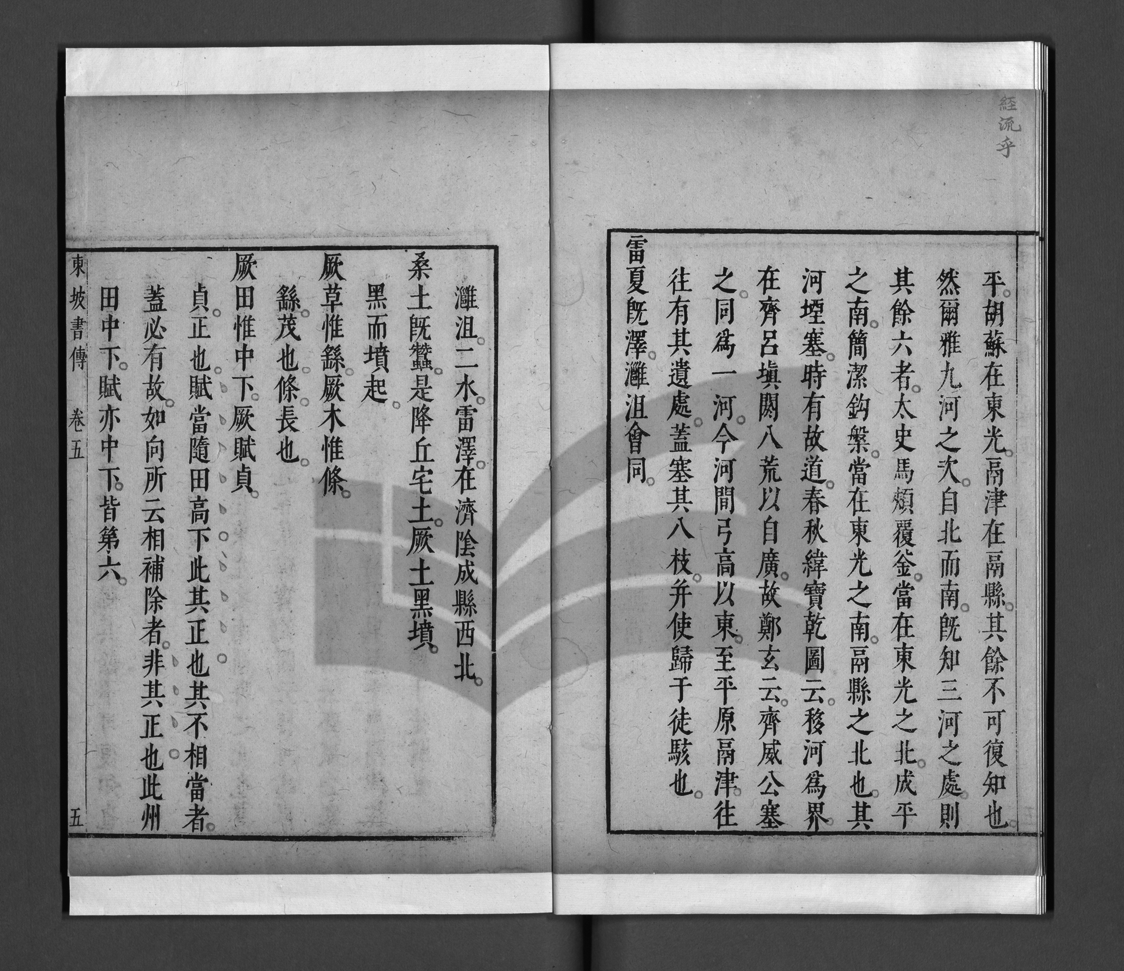 經流乎
平胡蘇在東光鬲津在鬲縣其餘不可復知也
然爾雅九河之次自北而南旣知三河之處則
其餘六者太史馬頰覆釜當在東光之北成平
之南簡潔鈎槃當在東光之南鬲縣之北也其
河堙塞時有故道春秋緯寶乾圖云移河爲界
在齊呂塡閼八荒以自廣故鄭玄云齊威公塞
之同爲一河今河間弓高以東至平原鬲津往
往有其遺處蓋塞其八枝幷使歸于徒駭也
雷夏旣澤灉沮會同
灉沮二水雷澤在濟陰成縣西北
桑土旣蠶是降丘宅土厥土黑墳
黑而墳起
厥草惟繇厥木惟條
繇茂也條長也
厥田惟中下厥賦貞
貞正也賦當隨田高下此其正也其不相當者
蓋必有故如向所云相補除者非其正也此州
田中下賦亦中下皆第六
東坡書傳 卷五 五